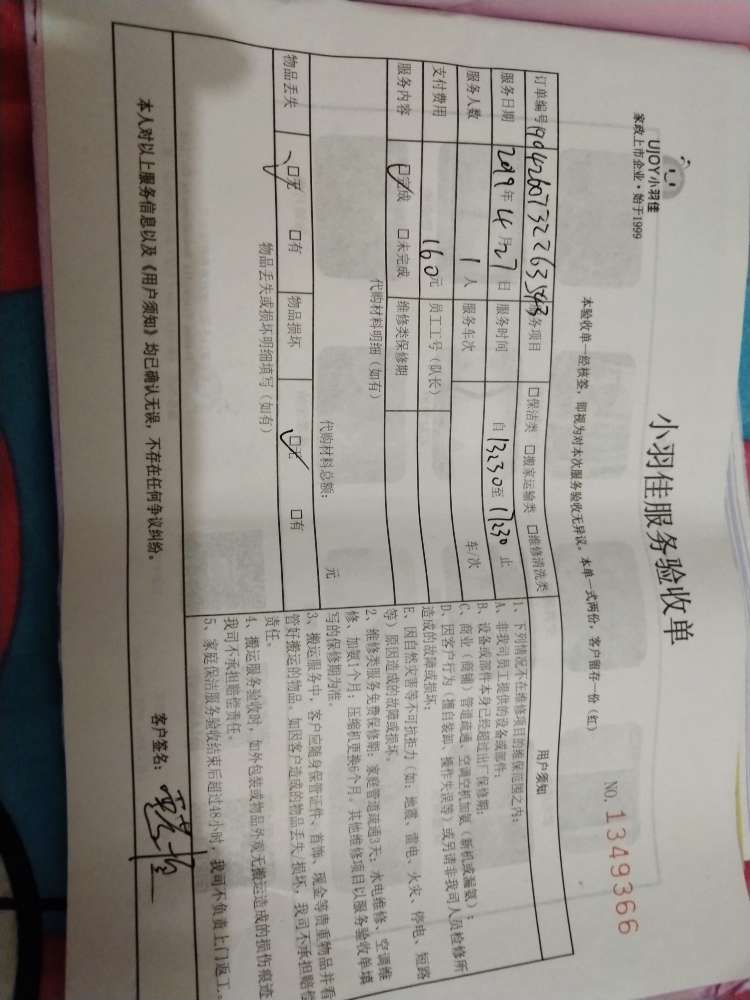 UJOY小羽佳
家政上市企业·始于1999
小羽佳服务验收单
NO. 1349366
本验收单一经核签，即视为对本次服务验收无异议。本单一式两份，客户留存一份（红）
订单编号 务项目 □保洁类 □搬家运输类 □维修清洗类
服务日期 2019年4月27日 服务时间 自13:30至17:30止
服务人数 1人 服务车次 车/次
支付费用 160元 员工工号（队长）
服务内容 □完成 □未完成 维修类保修期
代购材料明细（如有）
代购材料总额： 元
物品丢失 □无 □有 物品损坏 □无 □有
物品丢失或损坏明细填写（如有）
用户须知
1、下列情况不在维修项目的维保范围之内：
A、非我司员工提供的设备或部件；
B、设备或部件本身已经超过出厂保修期；
C、商业（商铺）管道疏通、空调空机加氨（新机或漏氨）；
D、因客户行为（擅自装卸、操作失误等）或另请非我司人员检修所
造成的故障或损坏；
E、因自然灾害等不可抗拒力（如：地震、雷电、火灾、停电、短路
等）原因造成的故障或损坏。
2、维修类服务免费保修期：家庭管道疏通3天；水电维修、空调维
修、加氨1个月；压缩机更换6个月。其他维修项目以服务验收单填
写的保修期为准。
3、搬运服务中，客户应随身保管证件、首饰、现金等贵重物品并看
管好搬运的物品，如因客户造成的物品丢失/损坏，我司不承担赔偿
责任。
4、搬运服务验收时，如外包装或物品外观无搬运造成的损伤痕迹
我司不承担赔偿责任。
5、家庭保洁服务验收结束后超过48小时，我司不负责上门返工。
本人对以上服务信息以及《用户须知》均已确认无误，不存在任何争议纠纷。 客户签名：